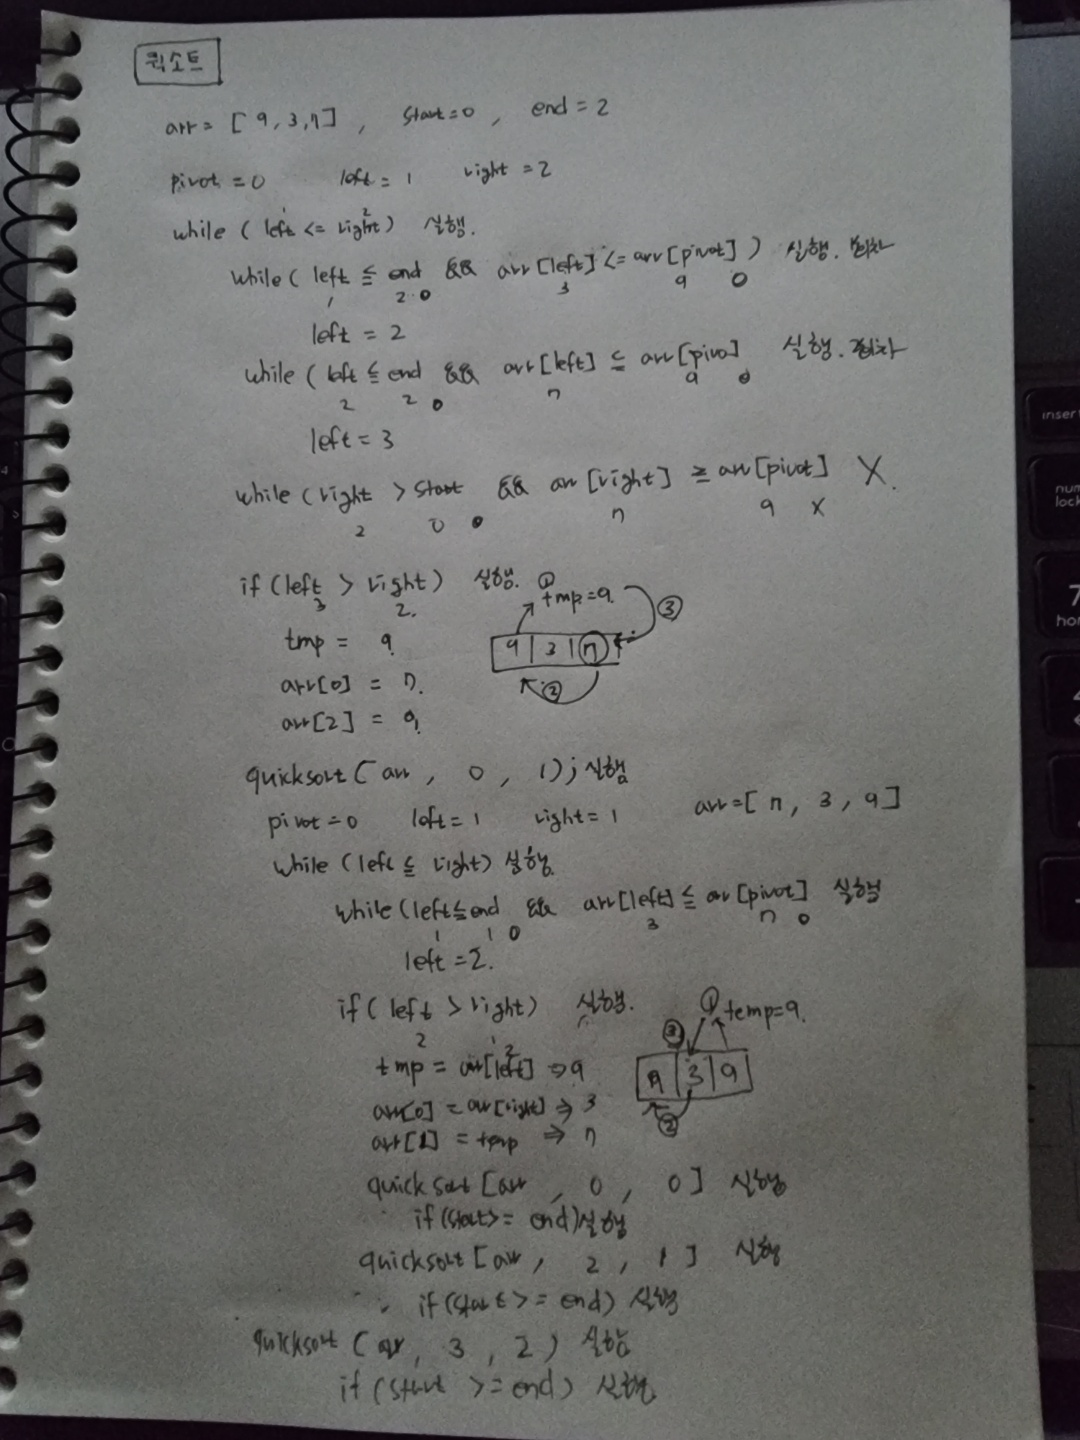 퀵소트
arr = [ 9, 3, 7 ] , start = 0 , end = 2
pivot = 0 left = 1 right = 2
while ( left <= right ) 실행.
1 2
while ( left ≦ end && arr [left] <= arr [pivot] ) 실행.
1 2 0 3 9 0
left = 2
while ( left ≦ end && arr [left] ≤ arr [pivo] 실행.
2 2 0 7 9 0
left = 3
while ( right > start && arr [right] ≥ arr [pivot] X.
2 0 0 7 9 X
if (left > right) 실행. ① tmp = 9.
3 2.
tmp = 9. 9 | 3 | 7 ③
arr[0] = 7. ②
arr[2] = 9.
quicksort ( arr , 0 , 1 ) ; 실행
pivot = 0 left = 1 right = 1 arr = [ 7 , 3 , 9 ]
while (left ≤ right) 실행.
while (left ≦ end && arr [left] ≦ arr [pivot] 실행
1 1 0 3 7 0
left = 2.
if ( left > right) 실행. ① temp = 9.
2 1 ③
tmp = arr[left] ⇒ 9 | 3 | 9
2
arr[0] = arr [right] ⇒ 3 ②
arr [1] = temp ⇒ 7
quick sort [arr , 0 , 0 ] 실행
if (start >= end) 실행
quicksort [ arr , 2 , 1 ] 실행
if (start >= end) 실행
quicksort ( arr , 3 , 2 ) 실행
if (start >= end) 실행.